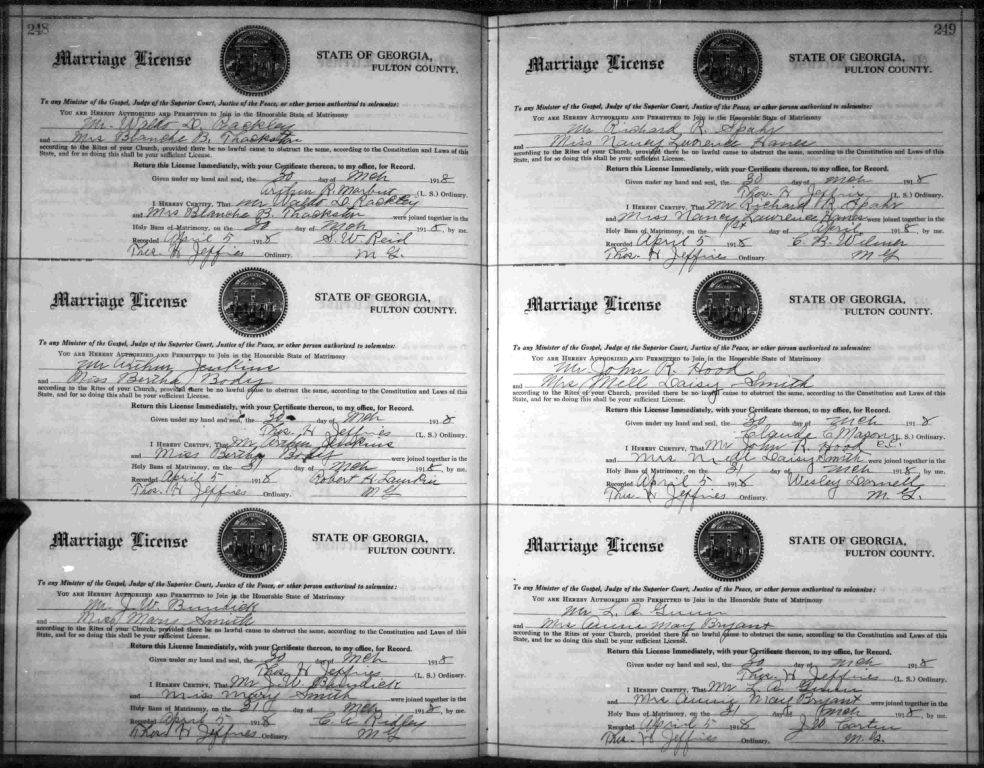 248
Marriage License
STATE OF GEORGIA,
FULTON COUNTY.
To any Minister of the Gospel, Judge of the Superior Court, Justice of the Peace, or other person authorized to solemnize:
YOU ARE HEREBY AUTHORIZED AND PERMITTED to Join in the Honorable State of Matrimony
Mr. Waldo D. Rackley
and Mrs Blanche B. Thackston
according to the Rites of your Church, provided there be no lawful cause to obstruct the same, according to the Constitution and Laws of this
State, and for so doing this shall be your sufficient License.
Return this License Immediately, with your Certificate thereon, to my office, for Record.
Given under my hand and seal, the 30 day of Mch 1918
Arthur R. Marbut (L. S.) Ordinary.
I HEREBY CERTIFY, That Mr Waldo D. Rackley
and Mrs Blanche B. Thackston were joined together in the
Holy Bans of Matrimony, on the 30 day of Mch 1918, by me.
Recorded April 5 1918 S. W. Reid
Thos. H Jeffries Ordinary. M. G.
Marriage License
STATE OF GEORGIA,
FULTON COUNTY.
To any Minister of the Gospel, Judge of the Superior Court, Justice of the Peace, or other person authorized to solemnize:
YOU ARE HEREBY AUTHORIZED AND PERMITTED to Join in the Honorable State of Matrimony
Mr Arthur Jenkins
and Miss Bertha Body
according to the Rites of your Church, provided there be no lawful cause to obstruct the same, according to the Constitution and Laws of this
State, and for so doing this shall be your sufficient License.
Return this License Immediately, with your Certificate thereon, to my office, for Record.
Given under my hand and seal, the 30 day of Mch 1918
Thos. H. Jeffries (L. S.) Ordinary.
I HEREBY CERTIFY, That Mr Arthur Jenkins
and Miss Bertha were joined together in the
Holy Bans of Matrimony, on the 31 day of Mch 1918, by me.
Recorded April 5 1918 Robert H.
Thos. H Jeffries Ordinary. M G
Marriage License
STATE OF GEORGIA,
FULTON COUNTY.
To any Minister of the Gospel, Judge of the Superior Court, Justice of the Peace, or other person authorized to solemnize:
YOU ARE HEREBY AUTHORIZED AND PERMITTED to Join in the Honorable State of Matrimony
Mr. J. W. Burdick
and Miss Mary Smith
according to the Rites of your Church, provided there be no lawful cause to obstruct the same, according to the Constitution and Laws of this
State, and for so doing this shall be your sufficient License.
Return this License Immediately, with your Certificate thereon, to my office, for Record.
Given under my hand and seal, the 30 day of Mch 1918
Thos. H Jeffries (L. S.) Ordinary.
I HEREBY CERTIFY, That Mr J. W. Burdick
and Miss Mary Smith were joined together in the
Holy Bans of Matrimony, on the 31 day of Mch 1918, by me.
Recorded April 5 1918 C. A. Ridley
Thos H Jeffries Ordinary. M G
249
Marriage License
STATE OF GEORGIA,
FULTON COUNTY.
To any Minister of the Gospel, Judge of the Superior Court, Justice of the Peace, or other person authorized to solemnize:
YOU ARE HEREBY AUTHORIZED AND PERMITTED to Join in the Honorable State of Matrimony
Mr Richard R. Spahr
and Miss Nancy Lawrence Hanes
according to the Rites of your Church, provided there be no lawful cause to obstruct the same, according to the Constitution and Laws of this
State, and for so doing this shall be your sufficient License.
Return this License Immediately, with your Certificate thereon, to my office, for Record.
Given under my hand and seal, the 30 day of Mch 1918
Thos. H. Jeffries (L. S.) Ordinary.
I HEREBY CERTIFY, That Mr Richard R. Spahr
and Miss Nancy Lawrence Hanes were joined together in the
Holy Bans of Matrimony, on the 1st day of April 1918, by me.
Recorded April 5 1918 C. B. Wilmer
Thos. H Jeffries Ordinary. M G
Marriage License
STATE OF GEORGIA,
FULTON COUNTY.
To any Minister of the Gospel, Judge of the Superior Court, Justice of the Peace, or other person authorized to solemnize:
YOU ARE HEREBY AUTHORIZED AND PERMITTED to Join in the Honorable State of Matrimony
Mr. John R. Hood
and Mrs Mell Daisy Smith
according to the Rites of your Church, provided there be no lawful cause to obstruct the same, according to the Constitution and Laws of this
State, and for so doing this shall be your sufficient License.
Return this License Immediately, with your Certificate thereon, to my office, for Record.
Given under my hand and seal, the 30 day of Mch 1918
Claude C Mason (L. S.) Ordinary.
I HEREBY CERTIFY, That Mr John R. Hood
and Mrs Mell Daisy Smith were joined together in the
Holy Bans of Matrimony, on the 31 day of Mch 1918, by me.
Recorded April 5 1918 Wesley Dornell
Thos H Jeffries Ordinary. M. G.
Marriage License
STATE OF GEORGIA,
FULTON COUNTY.
To any Minister of the Gospel, Judge of the Superior Court, Justice of the Peace, or other person authorized to solemnize:
YOU ARE HEREBY AUTHORIZED AND PERMITTED to Join in the Honorable State of Matrimony
Mr L. A. Gunn
and Mrs Annie May Bryant
according to the Rites of your Church, provided there be no lawful cause to obstruct the same, according to the Constitution and Laws of this
State, and for so doing this shall be your sufficient License.
Return this License Immediately, with your Certificate thereon, to my office, for Record.
Given under my hand and seal, the 30 day of Mch 1918
Thos. H Jeffries (L. S.) Ordinary.
I HEREBY CERTIFY, That Mr L. A. Gunn
and Mrs Annie May Bryant were joined together in the
Holy Bans of Matrimony, on the 31 day of Mch 1918, by me.
Recorded April 5 1918 J. W.
Thos. H Jeffries Ordinary. M. G.